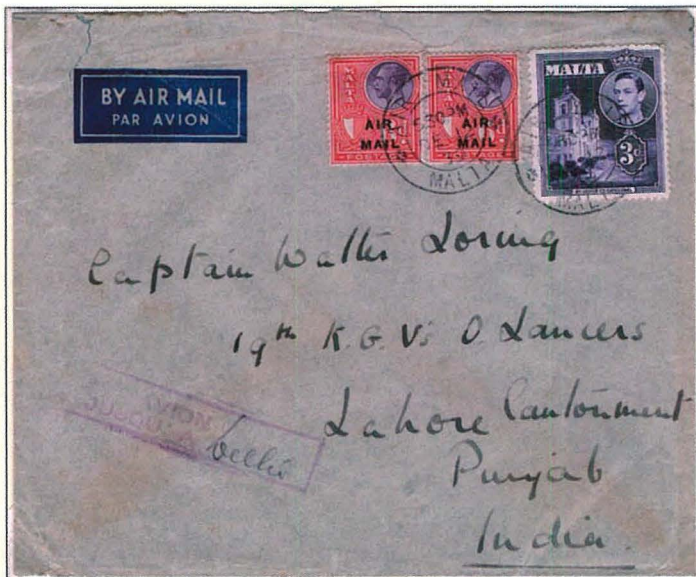 BY AIR MAIL
PAR AVION
MALTA
AIR MAIL
POSTAGE
AIR MAIL
MALTA
3d
MALTA
Captain Walter Loring
19th K.G.V's O Lancers
Lahore Cantonment
Punjab
India